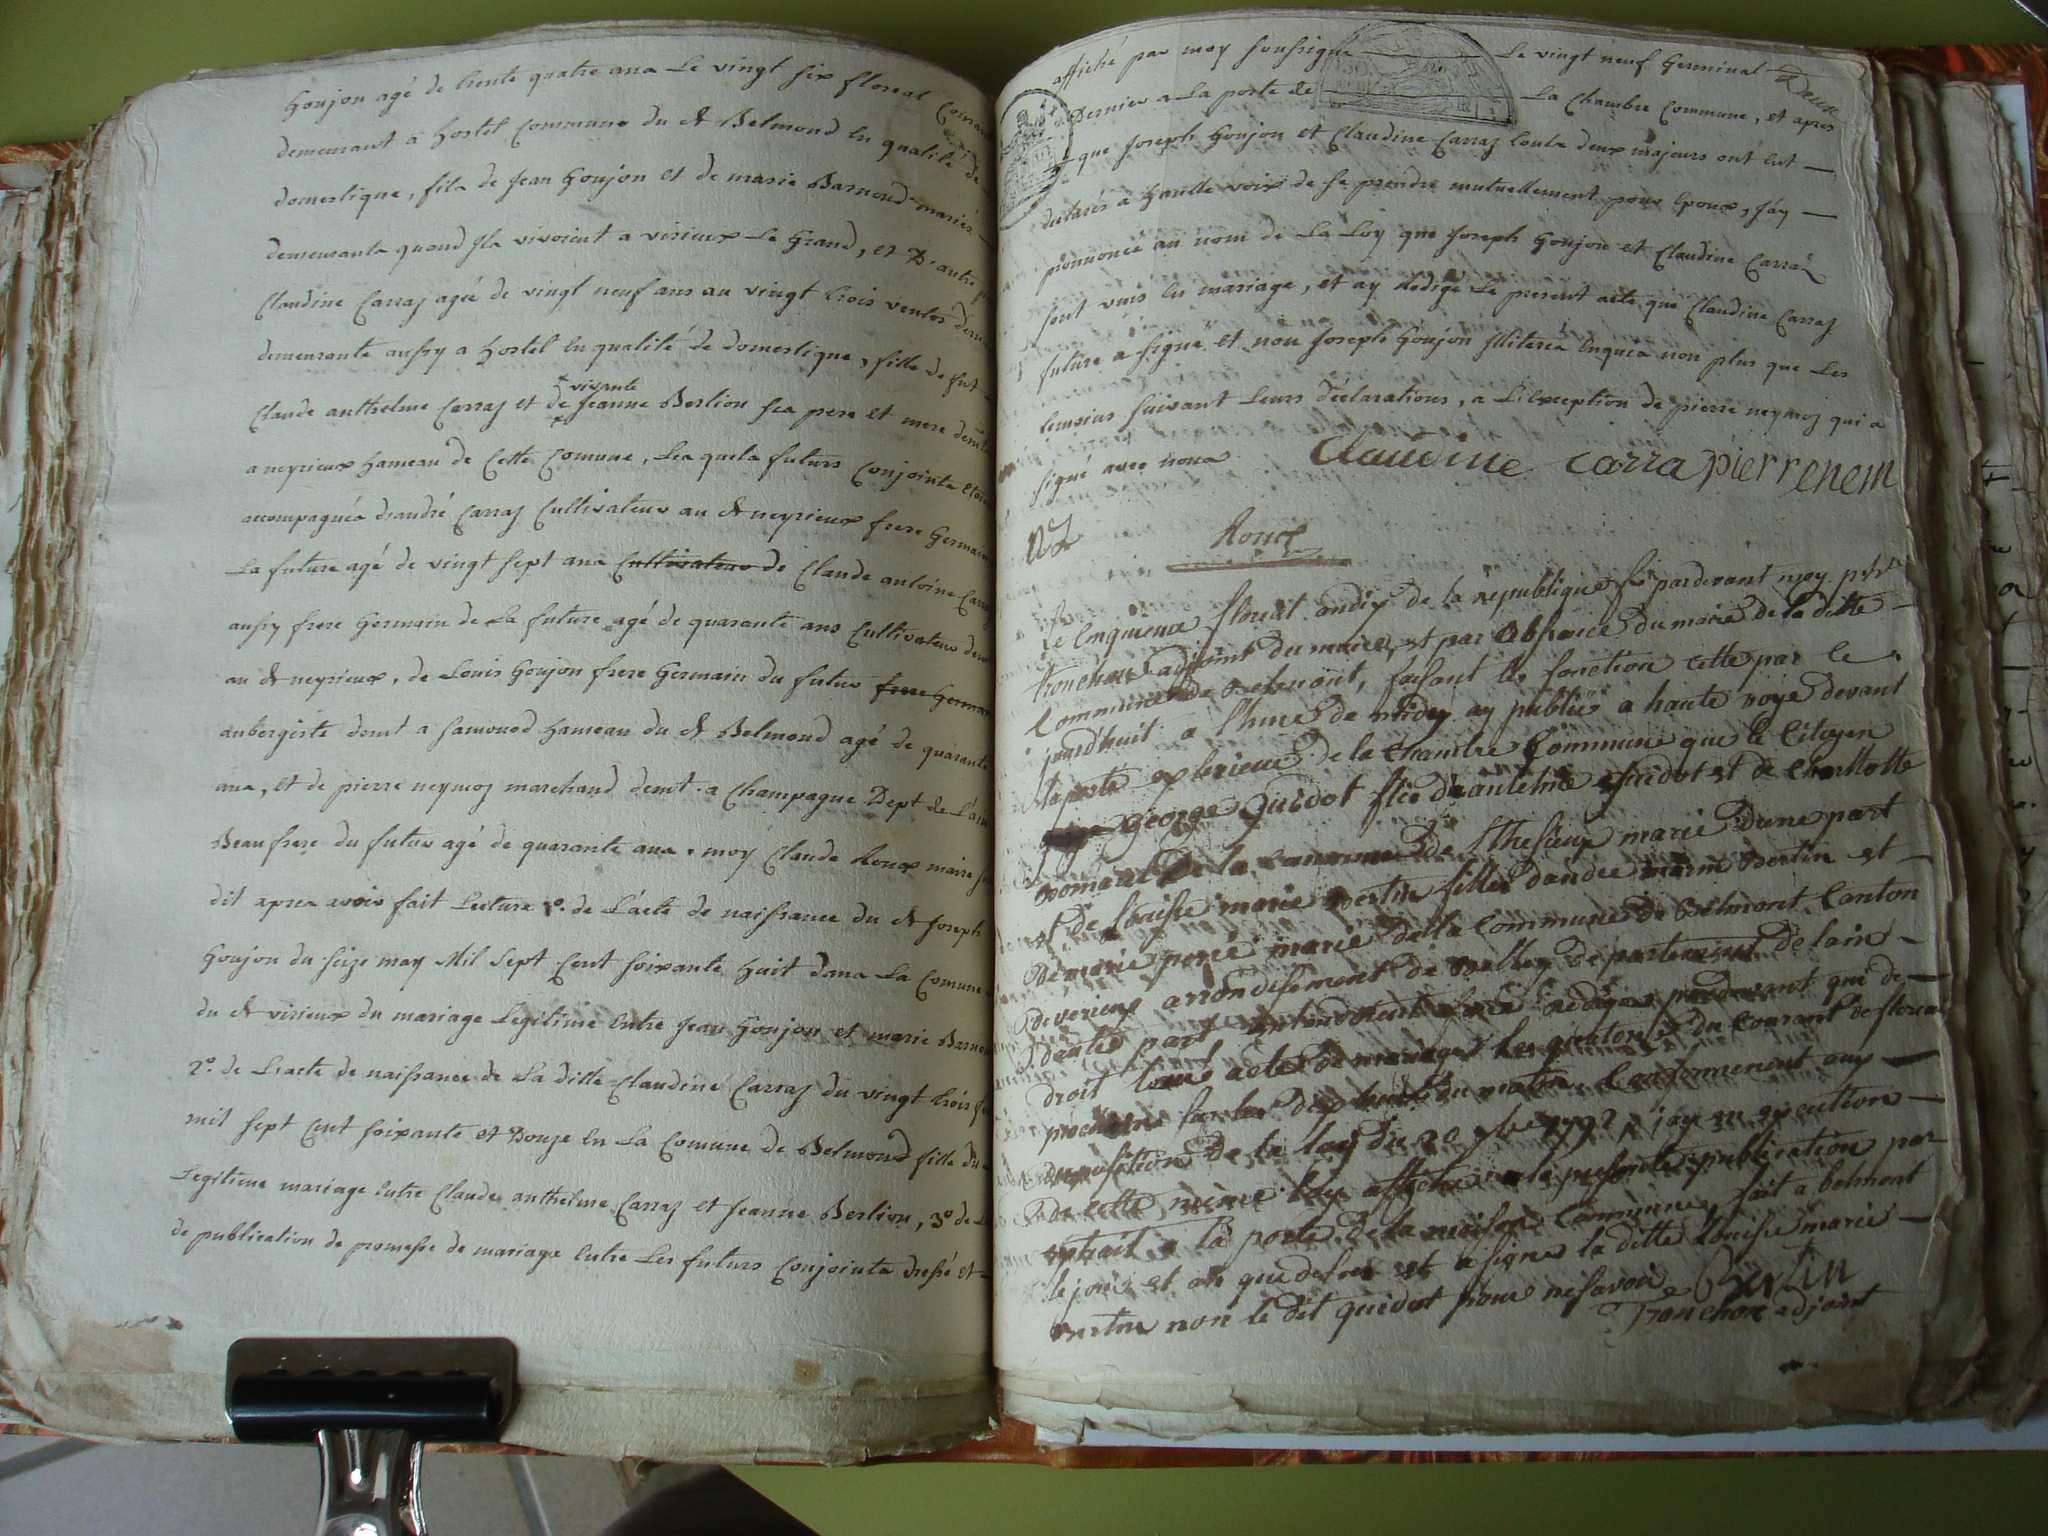 Goujon agé de trente quatre ans Le vingt six floreal Couran
demeurant à hostel Commune du dt Belmond en qualité de
domestique, fils de Jean Goujon et de marie Barnoud mariés
demeurants quand Ils vivoient a virieux Le Grand, et D'autre
Claudine Carraz agée de vingt neuf ans au vingt trois ventos dern
demeurante aussy a hostel en qualité de domestique, fille de fut
vivante
Claude anthelme Carraz et de Jeanne Berlion ses pere et mere demt
a neyrieux hameau de Cette Comune, Les quels futurs Conjoints
accompagnés d'andré Carraz Cultivateur au dt neyrieux frere Germain
La future agé de vingt sept ans Cultivateur de Claude antoine Carraz
aussy frere Germain de La future agé de quarante ans Cultivateur dem
au dt neyrieux, de Louis Goujon frere Germain du futur frere Germain
aubergiste demt a Samonod hameau du dt Belmond agé de quarante
ans, et de pierre neymoz marchand demt a Champagne Dept de L'ain
Beau frere du futur agé de quarante ans. moy Claude Roux maire
dit apres avoir fait Lecture 1o. de L'acte de naissance du dt Joseph
Goujon du seize may Mil Sept Cent soixante huit dans La Comune
du dt virieux du mariage Legitime Entre Jean Goujon et marie Barnou
2o. de L'acte de naissance de La ditte Claudine Carraz du vingt trois
mil sept Cent soixante et Douze en La Comune de Belmond fille du
Legitime mariage entre Claude anthelme Carraz et Jeanne Berlion, 3o de
de publication de promesse de mariage Entre Les futurs Conjoints dressé et
affiché par moy soussigné Le vingt neuf Germinal
Dernier a La porte de La Chambre Commune, et apres
que Joseph Goujon et Claudine Carraz touts deux majeurs ont Eut
declarés a haulte voix de se prendre mutuellement pour Epoux, J'ay
prononcé au nom de La Loy que Joseph Goujon et Claudine Carraz
sont unis En mariage, et ay Redigé Le present acte que Claudine Carraz
future a signé et non Joseph Goujon Illiteré Enquis non plus que Les
temoins suivant Leurs déclarations, a L'Exception de pierre neymoz qui a
signé avec nous
Claudine carra pierre nem
Roux
Le Cinquieme floreal an dix de la republique pardevant moy
tronchon adjoint du maire, et par absance du maire de la ditte
Commune de Belmont, faisant les fonction cette par le
jourd'huit a l'hure de midy ay publié a haute voye devant
la porte exterieure de la Chambre Commune que le Citoyen
George Guidot fils d'antelme Guidot et de Charllotte
de la Commune de marié Dune part
et de Louise marie Bertin fille dandré Bertin et
de marie marié de la Commune de Belmont Canton
de virieux arrondisement de Belley departement de lain
Dautre part redigé pardevant qui de
droit leurs acte de mariage Le quatorze du Courant de floreal
prochaine sur les dix heures du matin. Conformement aux
disposition de la loy du 20 7bre 1792, j'ay en execution
de cette meme loy affiché la presente publication par
extrait a la porte de la maison Commune, fait a belmont
le jour et an que dessus et a signé la ditte Louise marie
Bertin non le dit guidot pour ne savoir Bertin
Tronchon adjoint